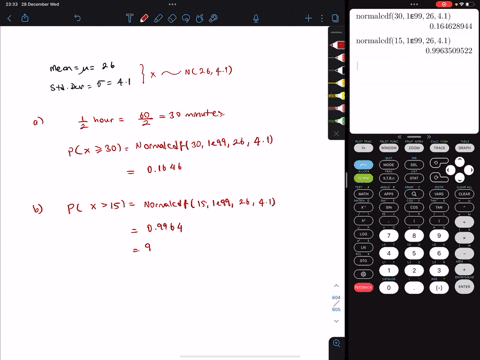 23:33 28 December Wed
mean = μ = 26
Std. Dev = σ = 4.1
} X ~ N(26, 4.1)
a) 1/2 hour = 60/2 = 30 minutes
P(x ≥ 30) = Normalcdf(30, 1e99, 26, 4.1)
= 0.1646
b) P(x > 15) = Normalcdf(15, 1e99, 26, 4.1)
= 0.9964
= 9
604
605
normalcdf(30,1ᴇ99,26,4.1)
0.164628944
normalcdf(15,1ᴇ99,26,4.1)
0.9963509522
Y= WINDOW ZOOM TRACE GRAPH
MODE DEL
X,T,θ,n STAT
MATH APPS PRGM VARS CLEAR
SIN COS TAN ^
( ) ÷
LOG 7 8 9 ×
LN 4 5 6 −
STO 1 2 3 +
0 . (-) ENTER